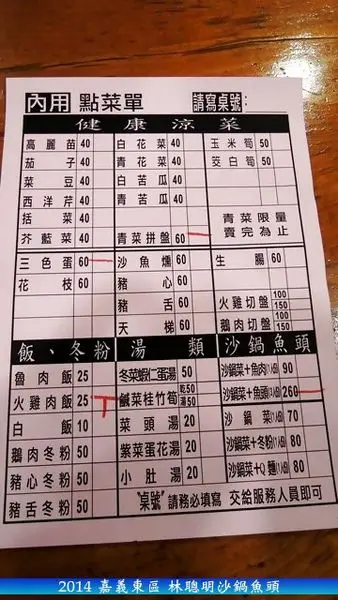 內用 點菜單 請寫桌號：
健康涼菜
高麗苗 40 白花菜 40 玉米筍 50
茄子 40 青花菜 40 筊白筍 50
菜豆 40 白苦瓜 40
西洋芹 40 青苦瓜 40
括菜 40 青菜限量
芥藍菜 40 青菜拼盤 60 賣完為止
三色蛋 60 沙魚燻 60 生腸 60
花枝 60 豬心 60
豬舌 60 火雞切盤 100 150
天梯 60 鵝肉切盤 100 150
飯、冬粉 湯類 沙鍋魚頭
魯肉飯 25 冬菜蝦仁蛋湯 50 沙鍋菜+魚肉(1人份) 90
火雞肉飯 25 鹹菜桂竹筍 乾50 湯50 沙鍋菜+魚頭 260
白飯 10 菜頭湯 20 沙鍋菜(1人份) 70
鵝肉冬粉 50 紫菜蛋花湯 20 沙鍋菜+冬粉(1人份) 80
豬心冬粉 50 小肚湯 20 沙鍋菜+Q麵(1人份) 80
豬舌冬粉 50 "桌號"請務必填寫 交給服務人員即可
2014 嘉義東區 林聰明沙鍋魚頭